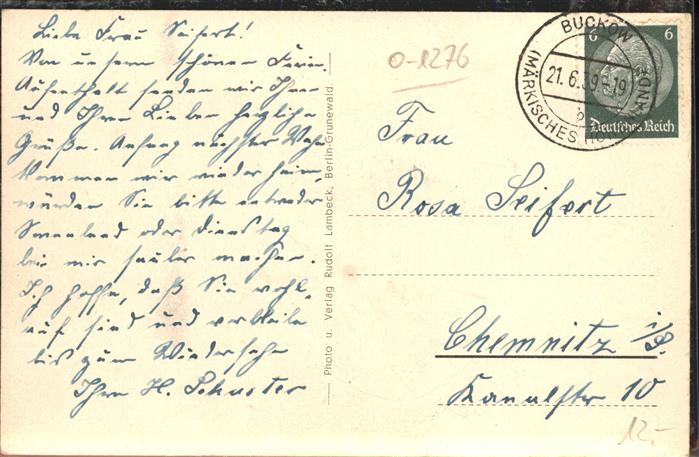 Liebe Frau Seifert!
Von unserm schönen Ferien-
Aufenthalt senden wir Ihnen
und Ihren Lieben herzliche
Grüße. Anfang nächster Woche
kommen wir wieder heim,
würden Sie bitte entweder
Sonnabend oder Dienstag
bei mir sauber machen.
Ich hoffe, daß Sie wohl-
auf sind und verbleibe
bis zum Wiedersehn
Ihre H. Schuster
Photo u. Verlag Rudolf Lambeck, Berlin-Grunewald.
0-1276
BUCKOW
(MÄRKISCHES
21.6.39-19
b
6 6
Deutsches Reich
Frau
Rosa Seifert
Chemnitz i/S.
Kanalstr 10
12.-